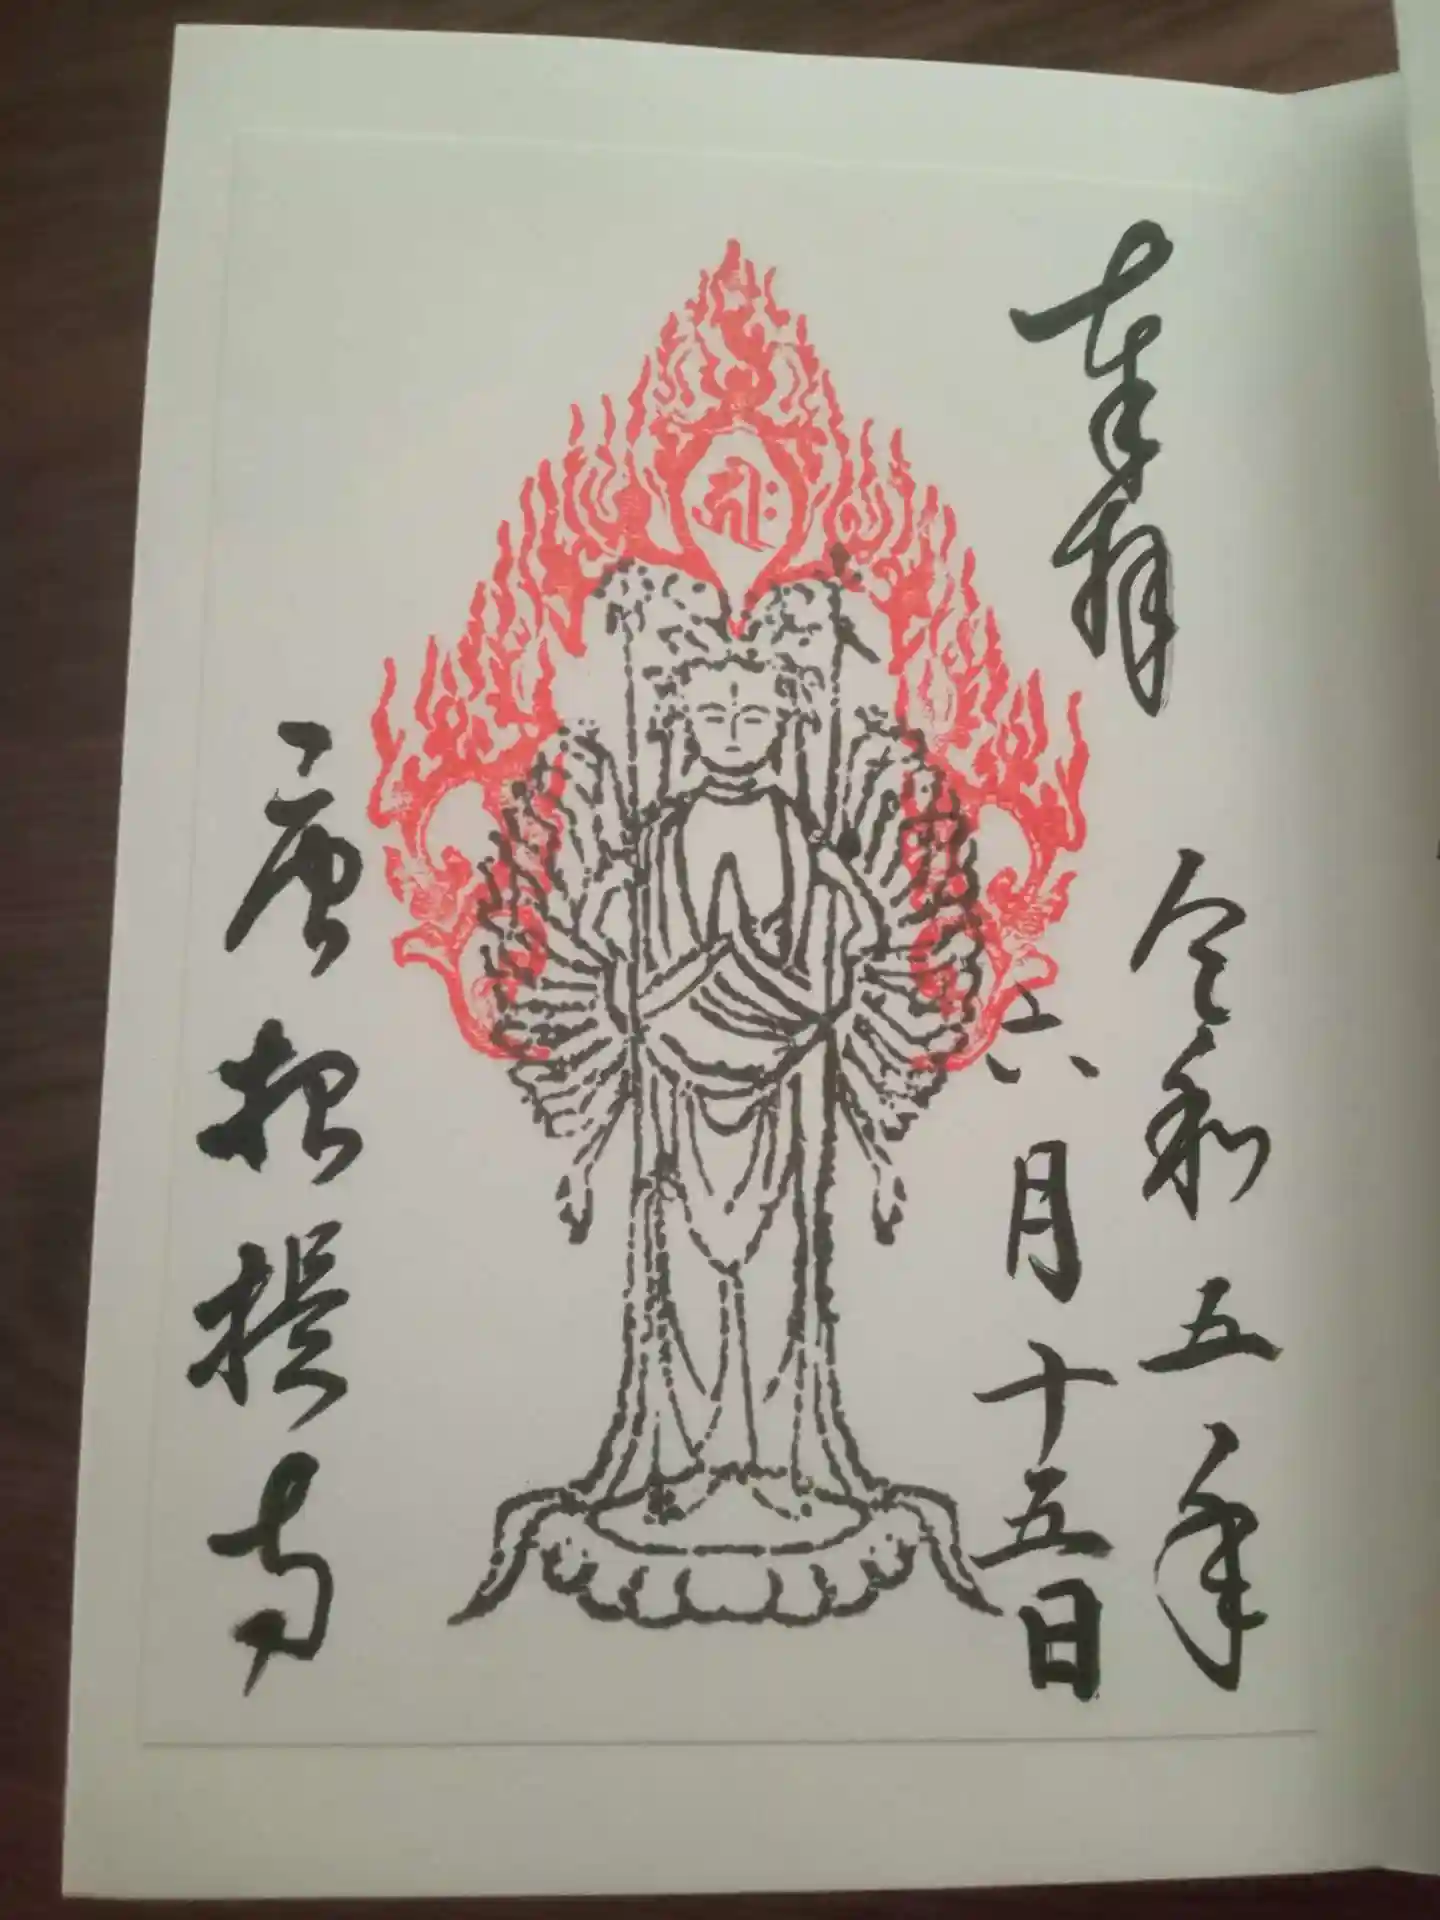 奉拝
令和五年
六月十五日
𑖮𑖿𑖨𑖱𑖾
唐招提寺